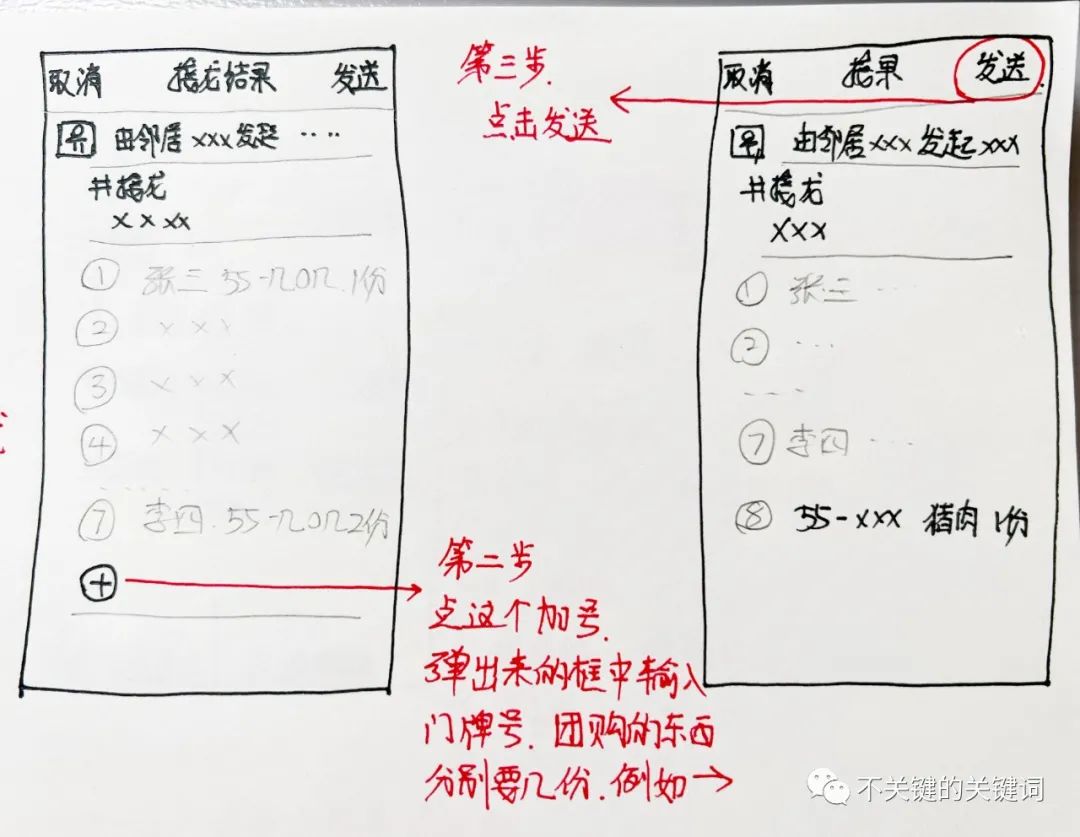 取消 接龙结果 发送
由邻居xxx发起 ····
#接龙
x x xx
① 张三 55-几0几.1份
② x x x
③ x x x
④ x x x
······
⑦ 李四.55-几0几2份
+
第二步
点这个加号.
弹出来的框中输入
门牌号.团购的东西
分别要几份.例如→
第三步.
点击发送
取消 接果 发送
由邻居xxx发起xxx
#接龙
xxx
① 张三 ···
② ···
----
⑦ 李四 ···
⑧ 55-xxx 猪肉 1份
不关键的关键词